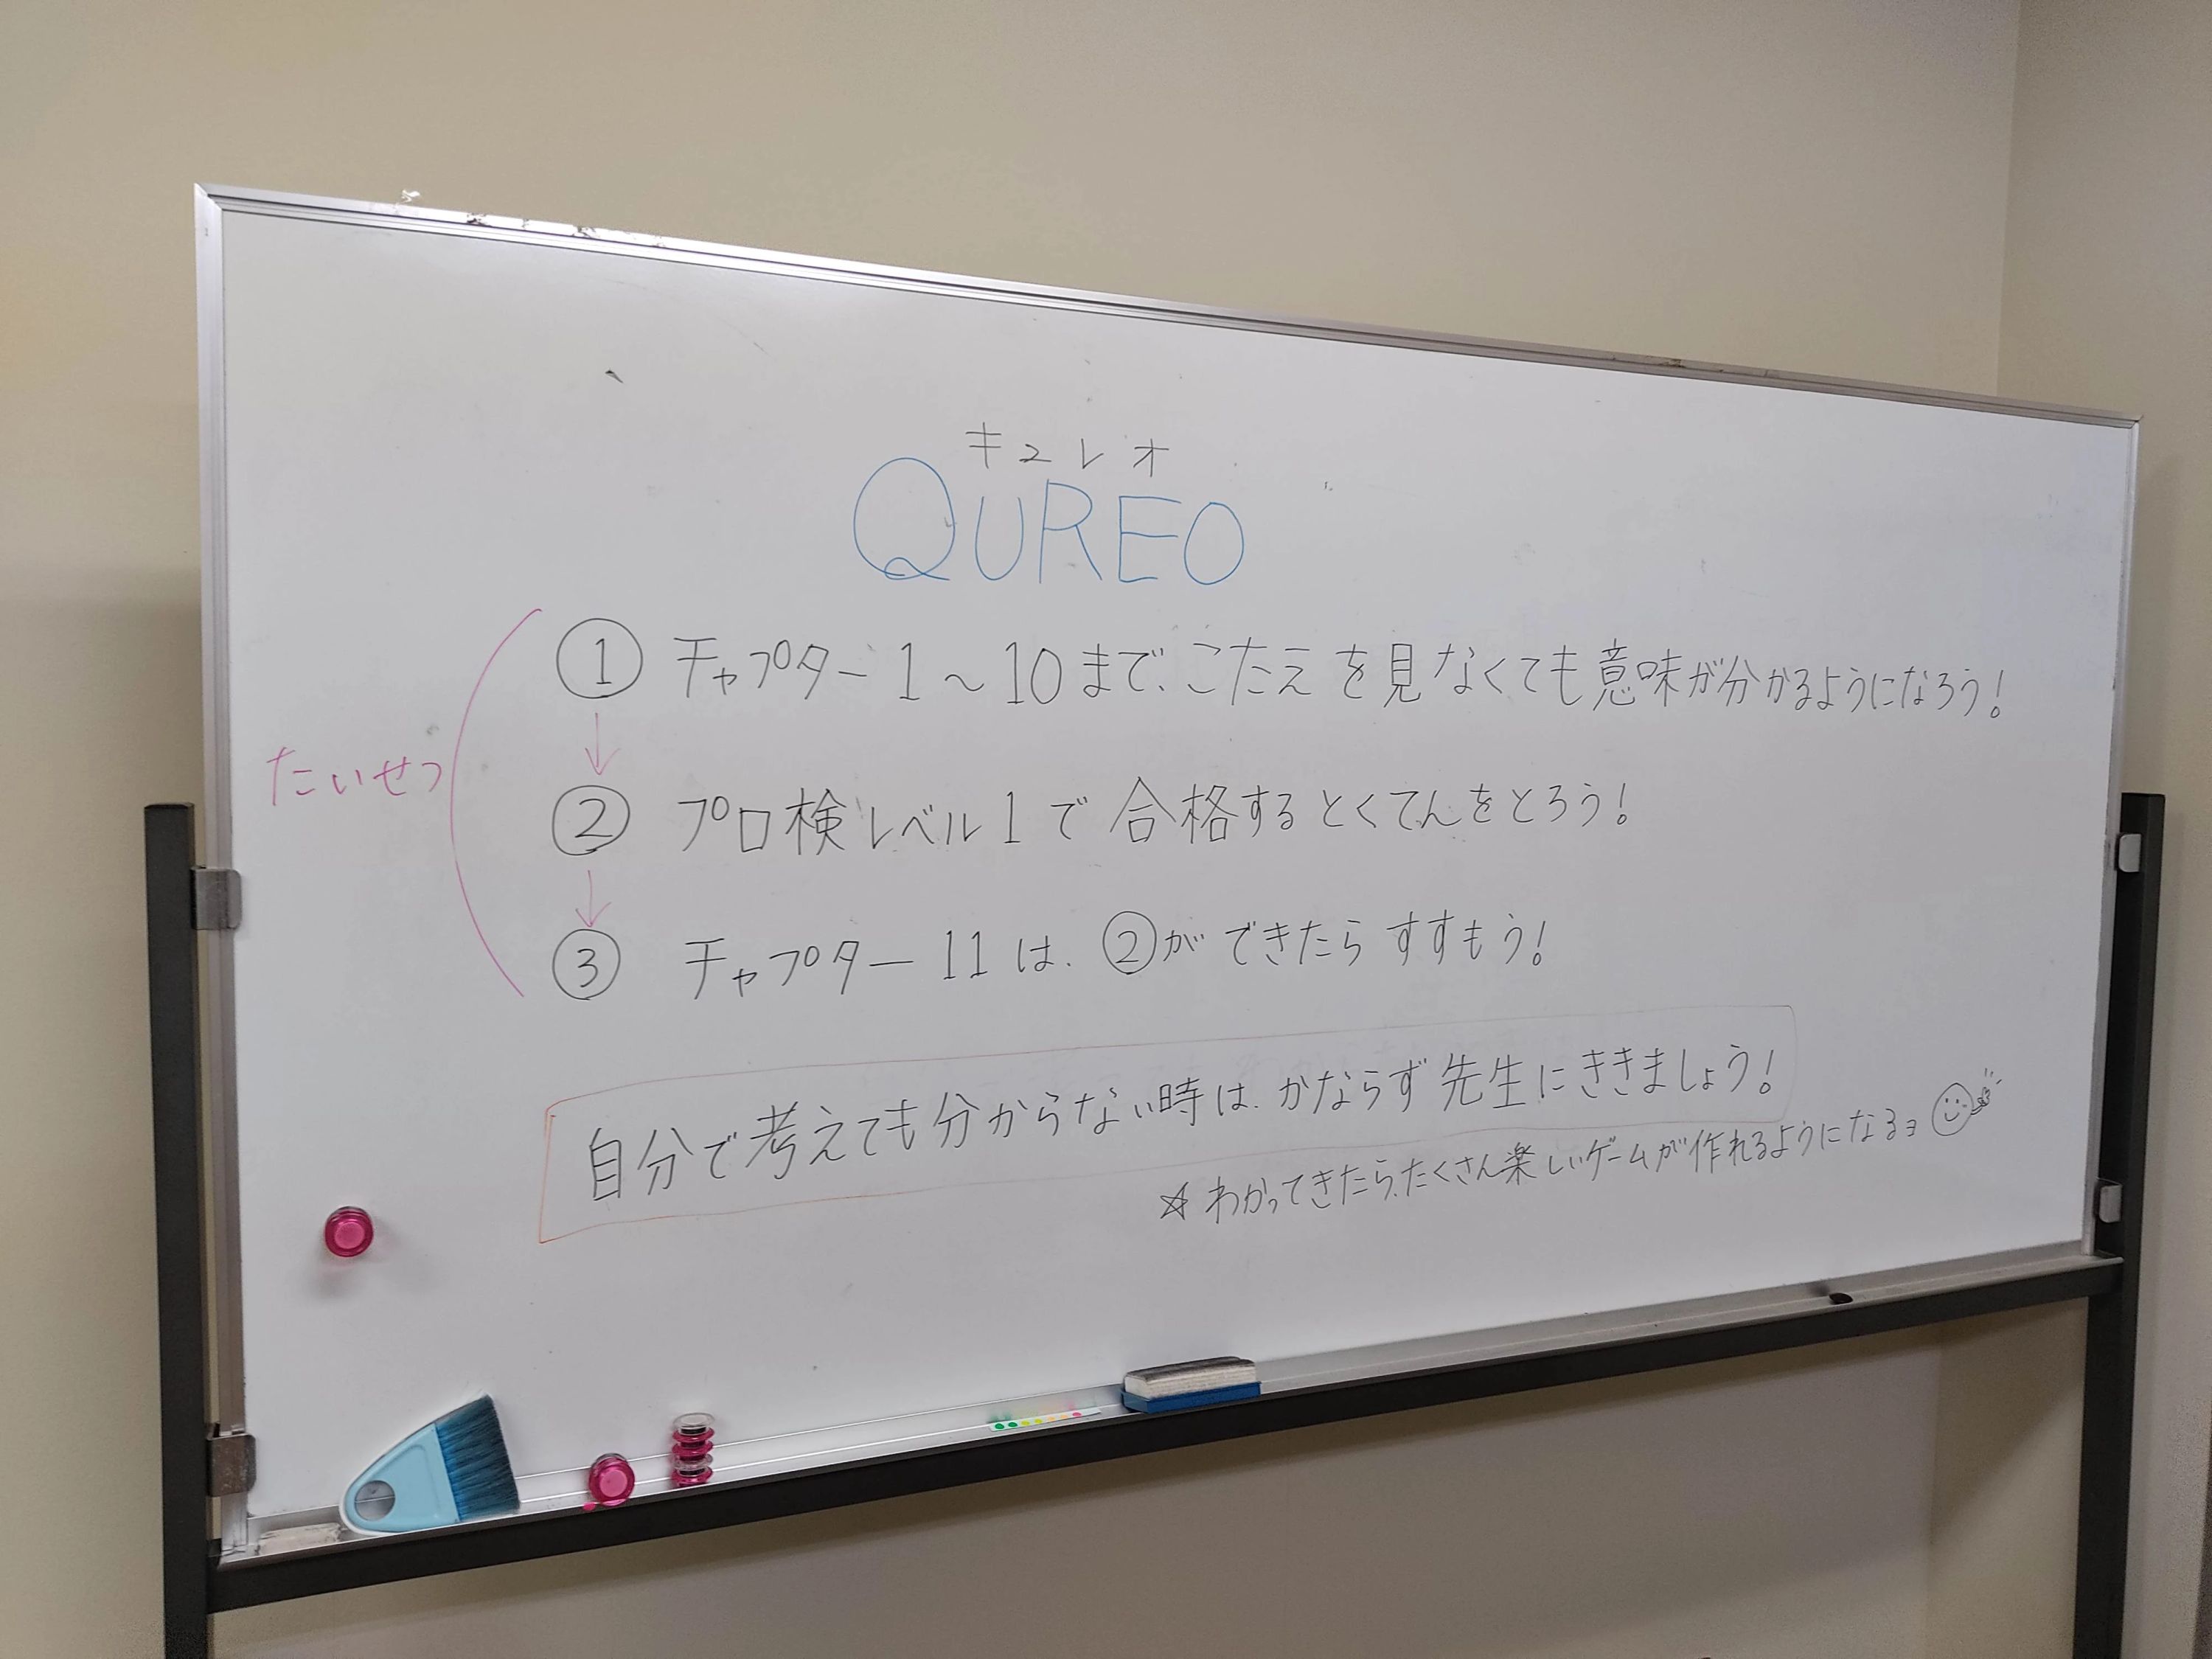 キュレオ
QUREO
① チャプター1〜10まで、こたえを見なくても意味が分かるようになろう!
↓
たいせつ
② プロ検レベル1で合格するとくてんをとろう!
↓
③ チャプター11は、②ができたらすすもう!
自分で考えても分からない時は、かならず先生にききましょう!
☆わかってきたら、たくさん楽しいゲームが作れるようになるヨ